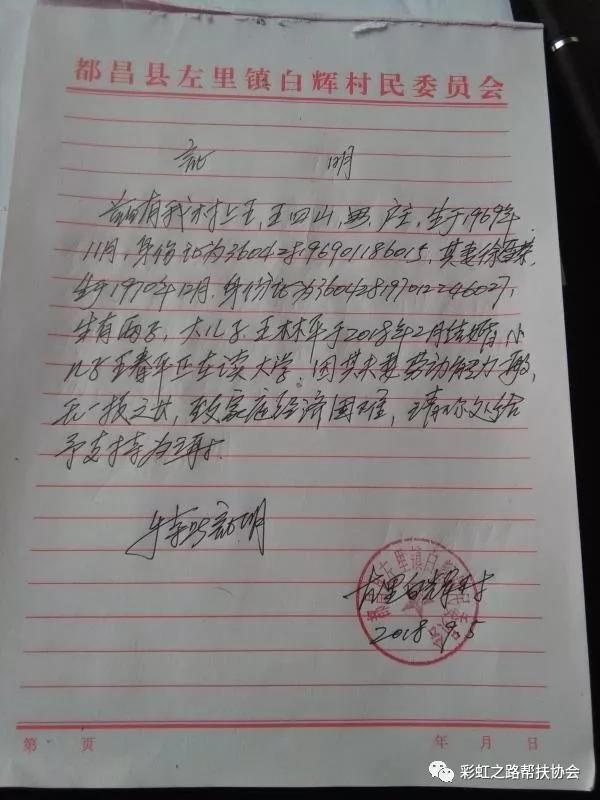 都昌县左里镇白辉村民委员会
证 明
兹有我村上王,王四山,男,户主,生于1969年
11月,身份证为360428196901186015,其妻徐
生于1970年12月,身份证为360428197012246027,
生有两子,大儿子王林平于2018年2月结婚,小
儿子王春平正在读大学,因其夫妻劳动能力一般,
无一技之长,致家庭经济困难,请你处给
予支持为
特此证明
左里白辉村
2018.9.5
第 页
年 月 日
彩虹之路帮扶协会